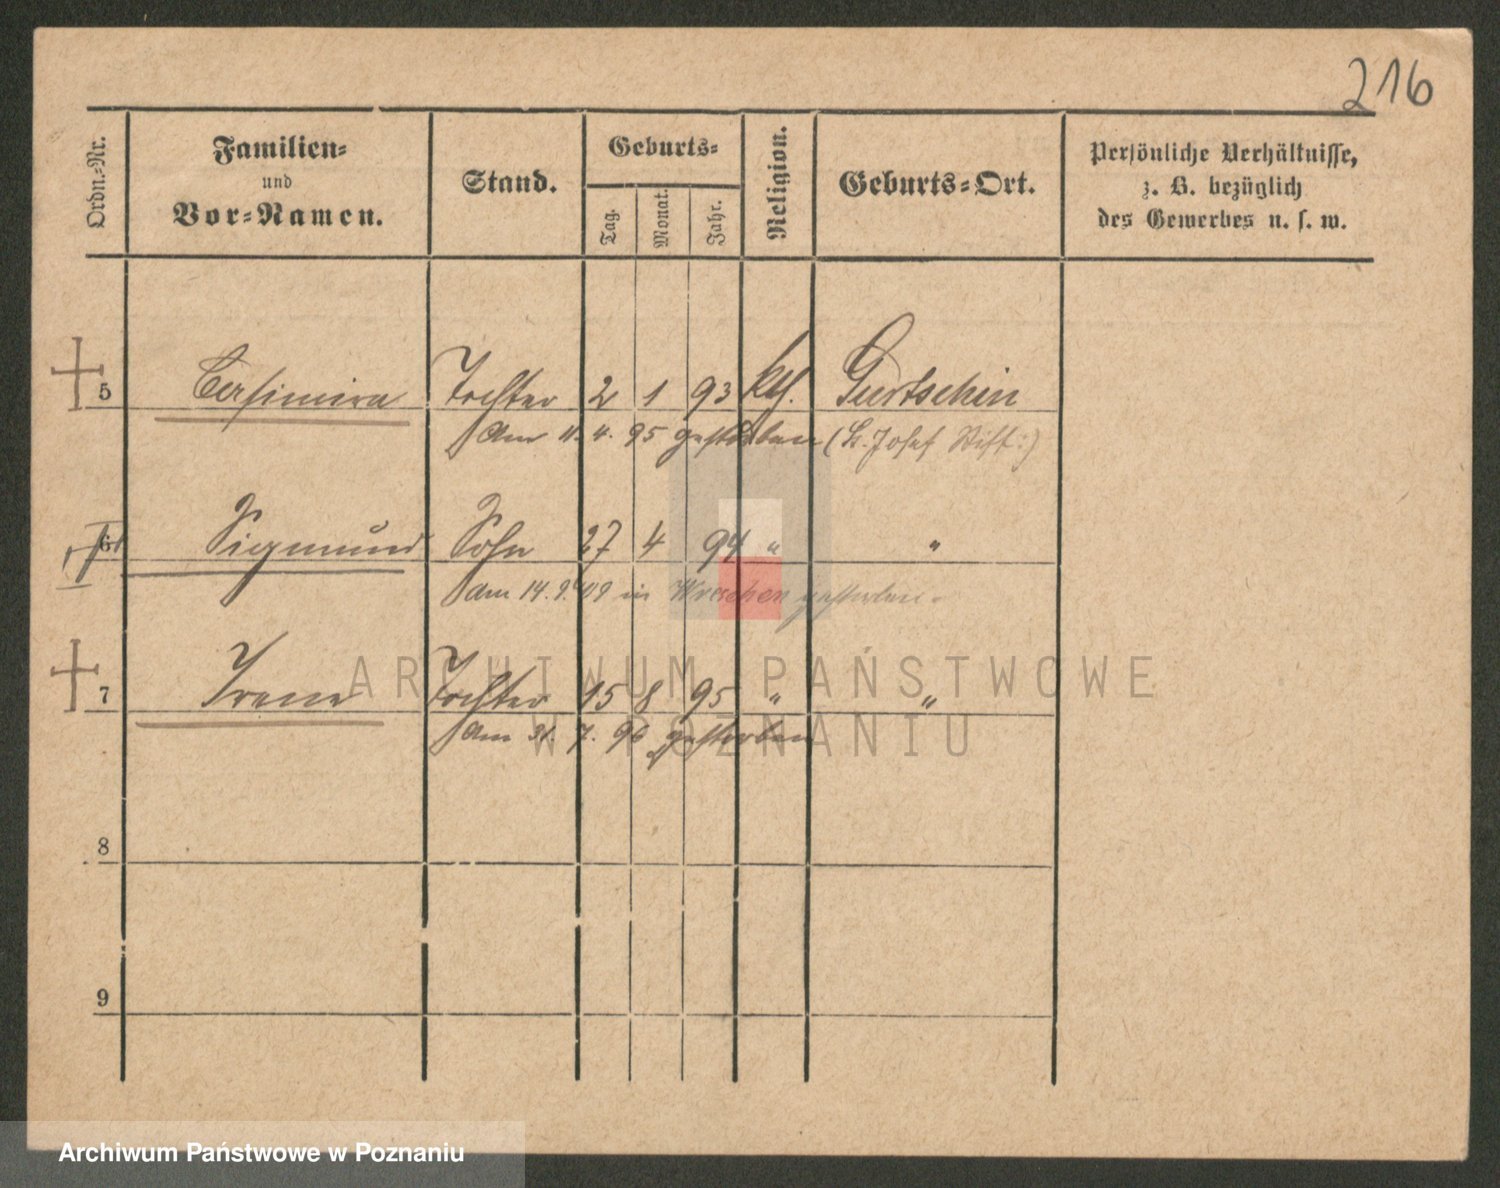 216
Ordn.-Nr.
Familien-
und
Vor-Namen.
Stand.
Geburts-
Tag.
Monat.
Jahr.
Religion.
Geburts-Ort.
Persönliche Verhältnisse,
z. B. bezüglich
des Gewerbes u. s. w.
5 Casimira Tochter 2 1 93 kth. Gurtschin
Am 11. 4. 95 gestorben (St. Josef Stift:)
6 Siegmund Sohn 27 4 94 " "
Am 14. 9. 09 in gestorben.
7 Irene Tochter 15 8 95 " "
Am 31. 7. 96 gestorben
8
9
ARCHIWUM PAŃSTWOWE
W POZNANIU
Archiwum Państwowe w Poznaniu